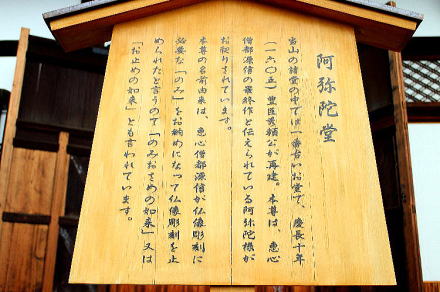 阿弥陀堂
当山の諸堂の中では一番古いお堂で、慶長十年
(一六〇五)豊臣秀頼公が再建。本尊は、恵心
僧都源信の最終作と伝えられている阿弥陀様が
お祀りされています。
本尊の名前由来は、恵心僧都源信が仏像彫刻に
必要な「のみ」をお納めになって仏像彫刻を止
められたと言うので「のみおさめの如来」又は
「お止めの如来」とも言われています。